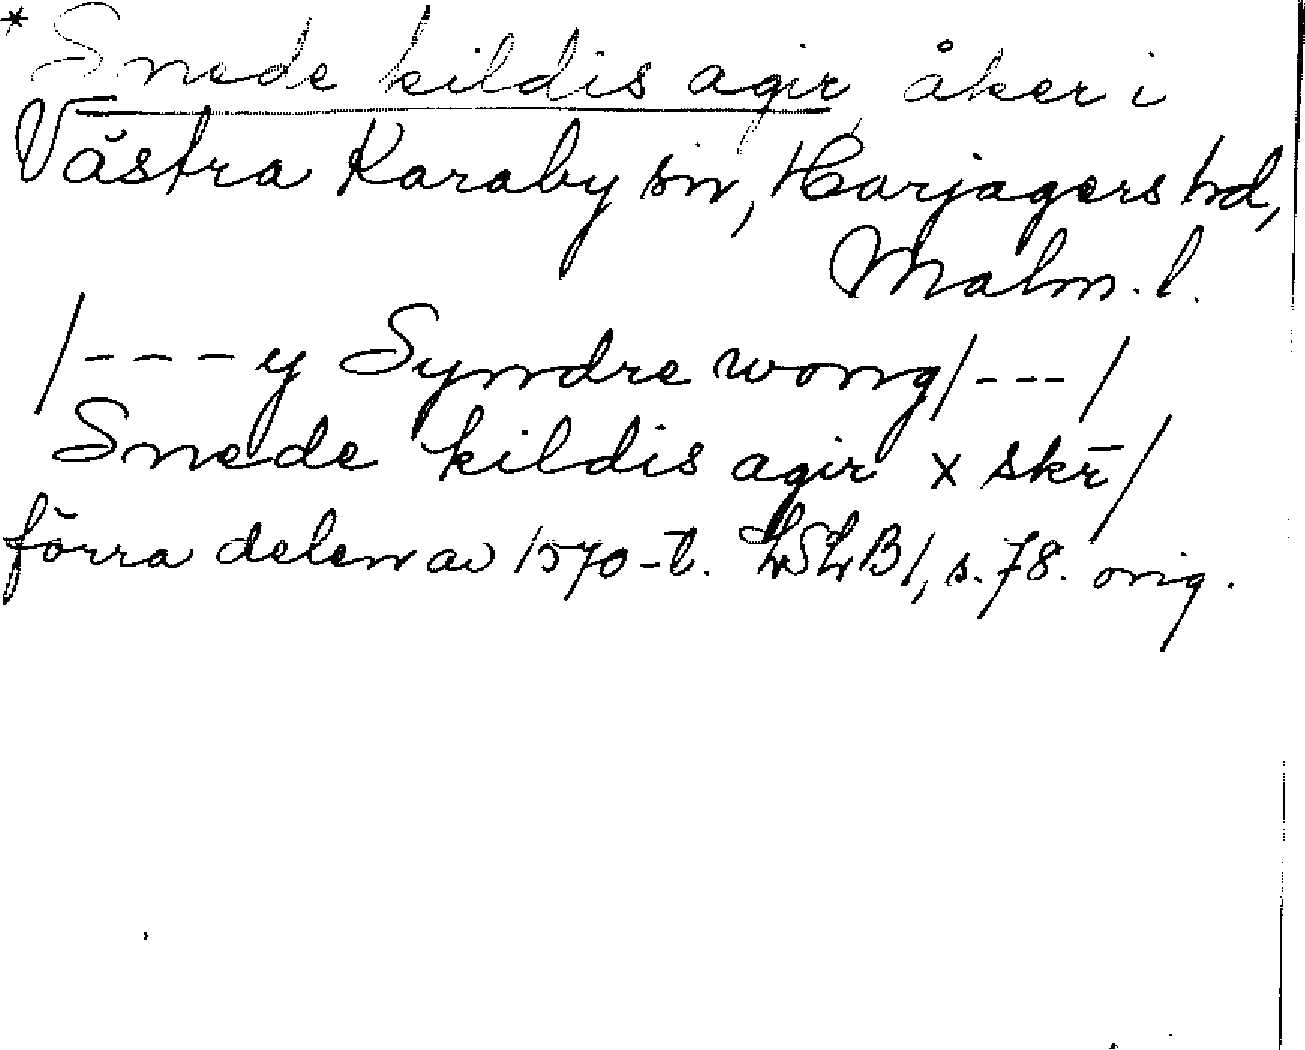 * Snede kildis agir, åker i
Västra Karaby sn, Harjagers hd,
Malm. l.
/---y Syndre wong/---/
Snede kildis agir x skr̄/
förra delen av 1570-t. LSLB1, s. 78. orig.